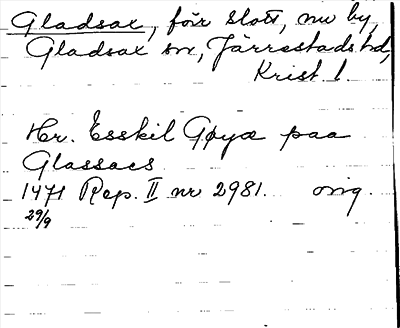 Gladsax, förr slott, nu by,
Gladsax sn, Järrestads hd,
Krist. l.
Hr. Esskil Gøye paa
Glassacs
1471 Rep. II nr 2981. orig.
29/9